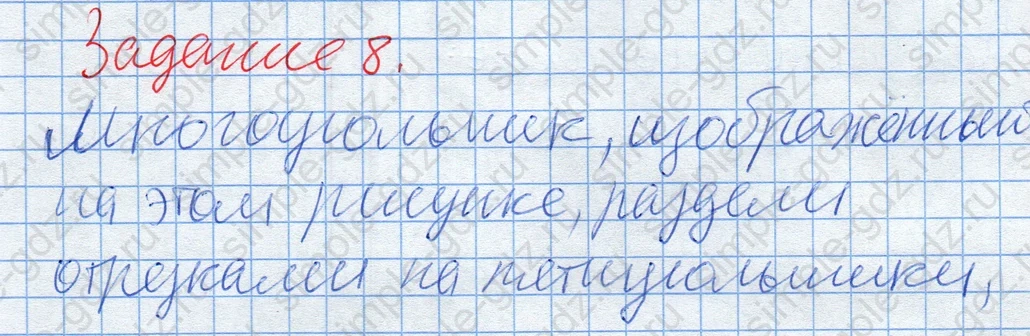 Задание 8.
Многоугольник, изображённый
на этом рисунке, раздели
отрезками на пятиугольники,